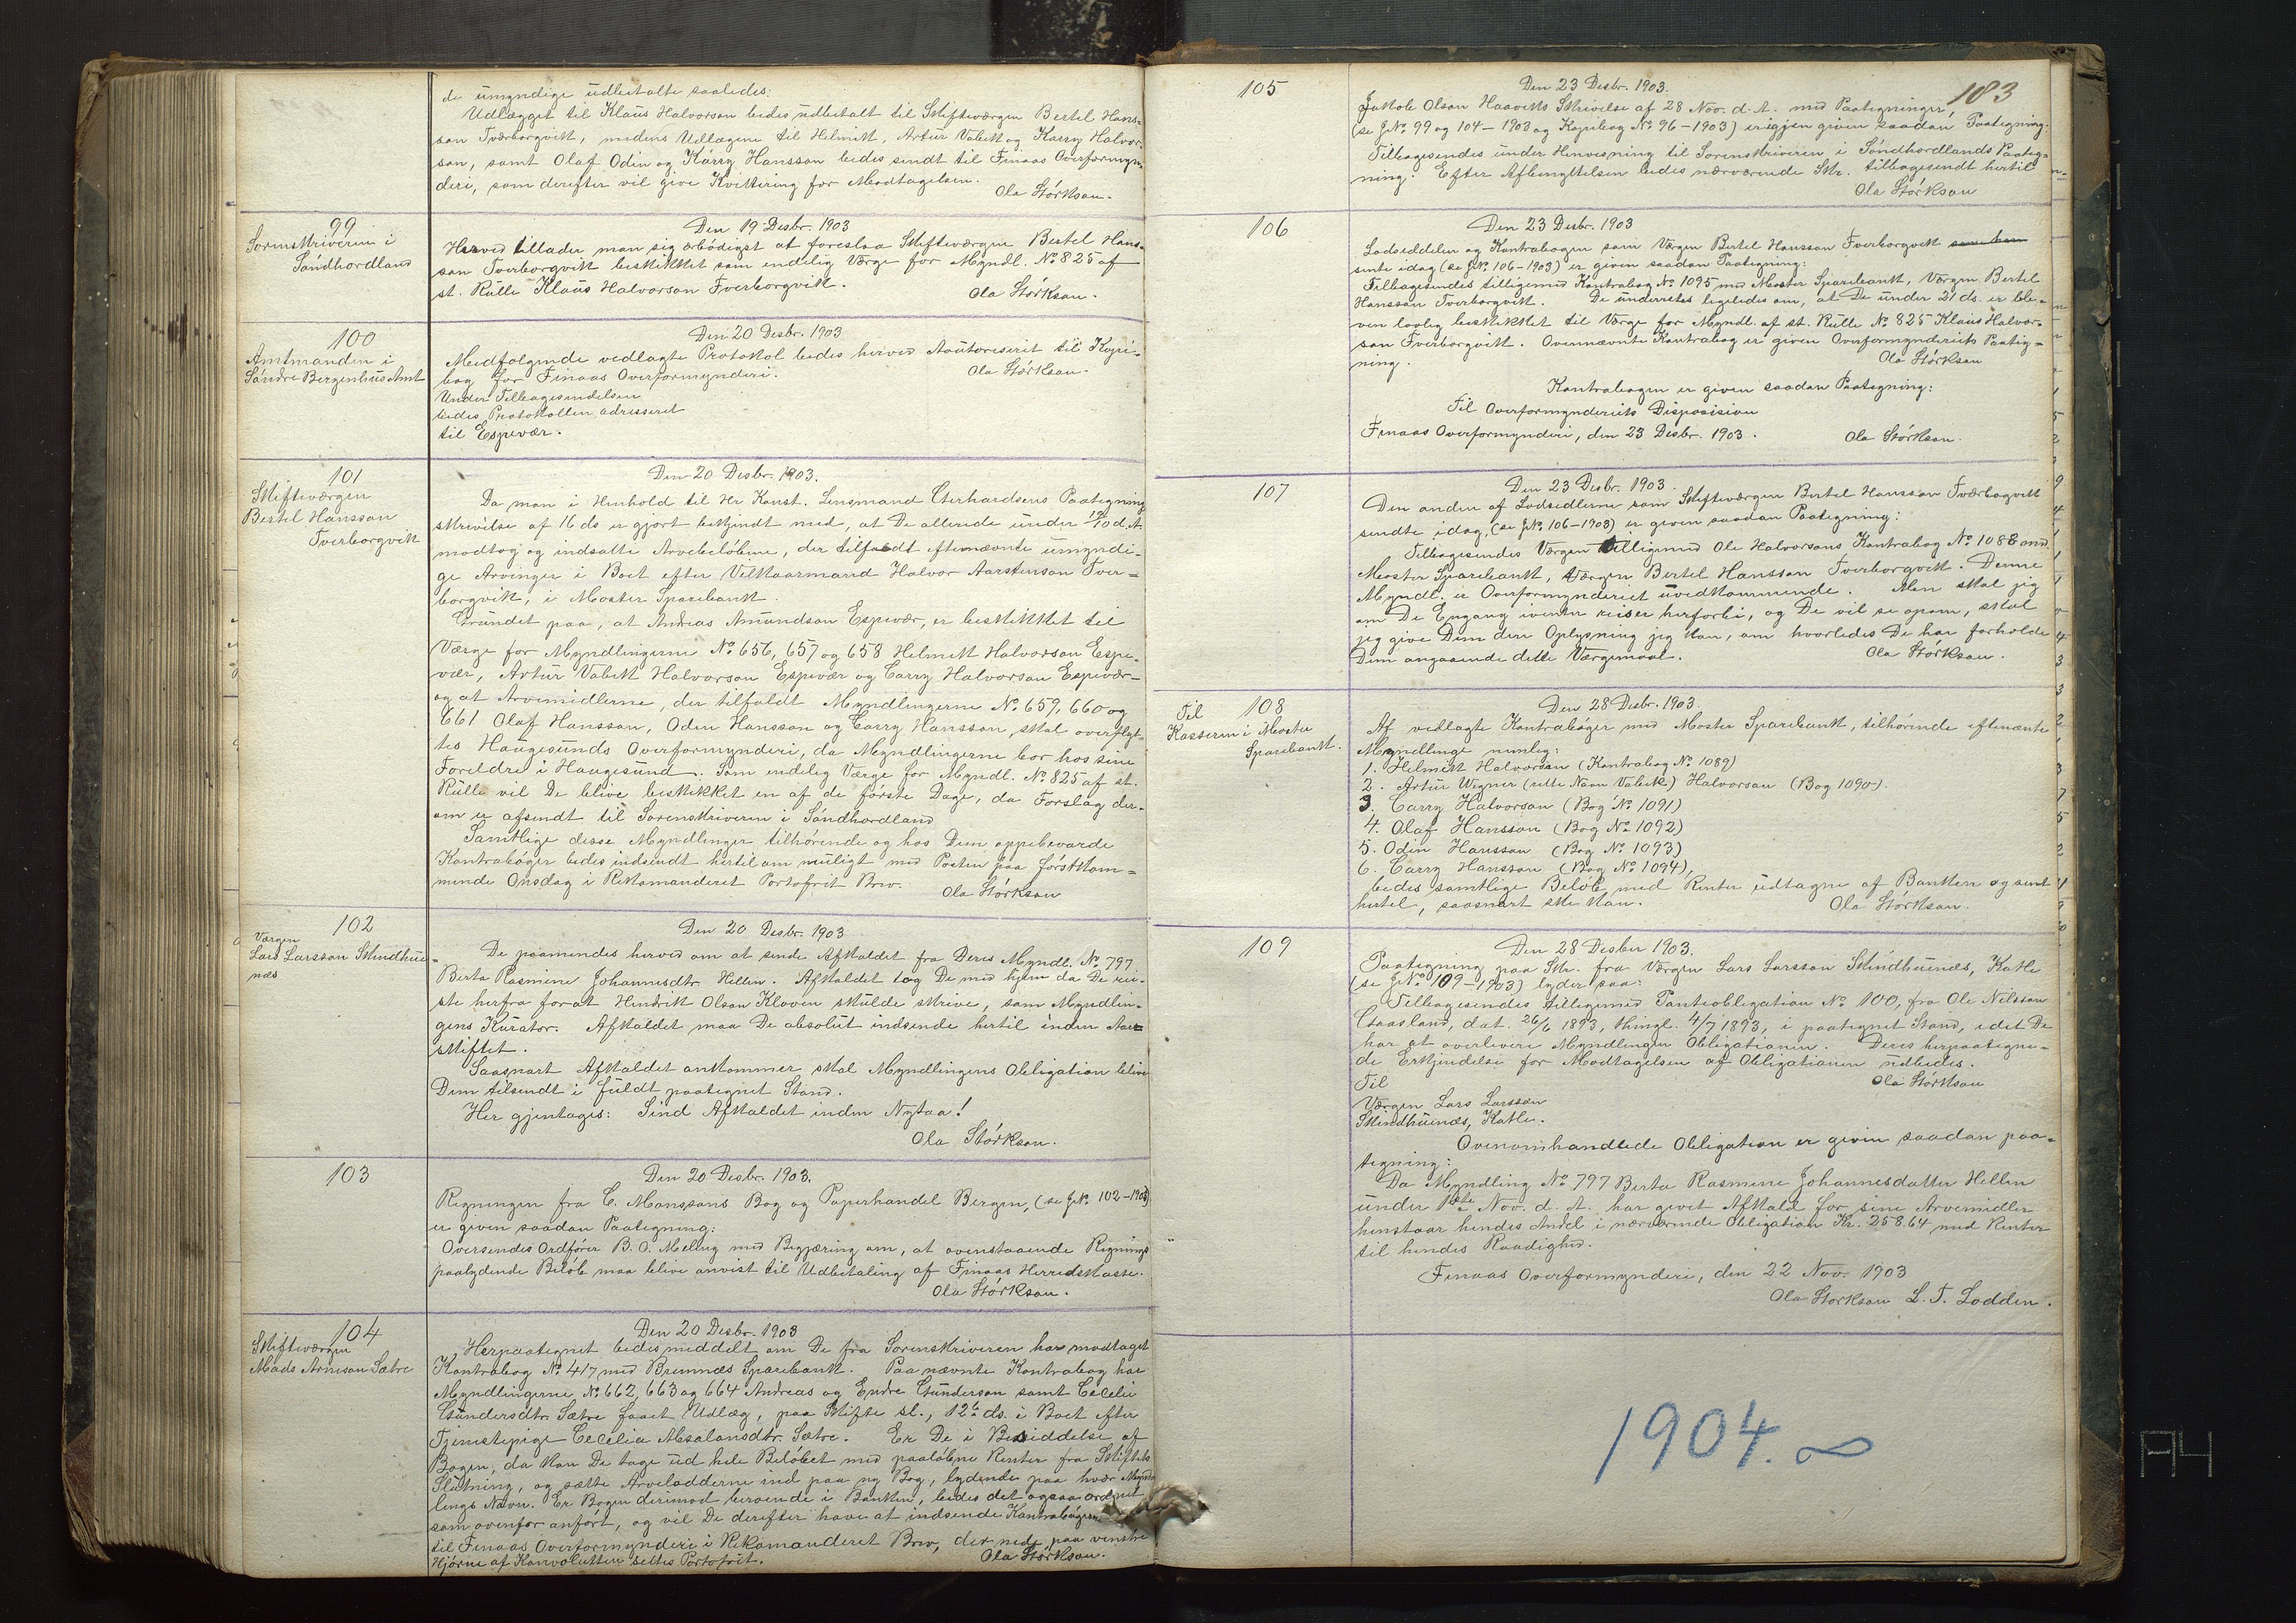 de umyndige udbetalte saaledes:
Udlægget til Klaus Halvorson bedes udbetalt til Skifteværgen Bertel Hans-
son Tværborgvik, medens Udlægene til Helmikk, Artur Vabekk og Karry Halvor-
son, samt Olaf Odin og Karry Hansson bedes sendt til Finaas Overformyn-
deri, som derefter vil give Kvittering for Modtagelsen.
Ola Störkson.
99
Sorenskriveren i
Söndhordland
Den 19 Desbr. 1903
Herved tillader man sig ærbödigst at foreslaa Skifteværgen Bertel Hans-
son Tverborgvik beskikket som endelig Værge for Myndl. No 825 af
st. Rulle Klaus Halvorson Tverborgvik.
Ola Störkson.
100
Amtmanden i
Söndre Bergenhus Amt
Den 20 Desbr. 1903
Medfölgende vedlagte Protokol bedes herved Autoriseret til Kopi-
bog for Finaas Overformynderi.
Ola Störkson.
Under Tilbagesendelsen
bedes Protokollen adresseret
til Espevær.
101
Skifteværgen
Bertel Hansson
Tverborgvik
Den 20 Desbr. 1903.
Da man i Henhold til Hr Konst. Lensmand Gerhardsens Paategning
skrivelse af 16 ds er gjort bekjendt med, at De allerede under 12/10 d. A.
modtog og indsatte Arvebelöbene, der tilfaldt efternævnte umyndi-
ge Arvinger i Boet efter Velkaarmand Halvor Aarstenson Tver-
borgvik, i Moster Sparebank.
Grundet paa, at Andreas Amundson Espevær, er beskikket til
Værge for Myndlingerne No 656, 657 og 658 Helmikk Halvorson Espe-
vær, Artur Vabekk Halvorson Espevær og Carry Halvorson Espevær -
og at Arvemidlerne, der tilfaldt Myndlingerne No 659, 660 og
661 Olaf Hansson, Odin Hansson og Carry Hansson, skal overflyt-
tes Haugesunds Overformynderi, da Myndlingerne bor hos sine
Foreldre i Haugesund. Som endelig Værge for Myndl. No 825 af st.
Rulle vil De blive beskikket en af de förste Dage, da Forslag der-
om er afsendt til Sorenskriveren i Söndhordland
Samtlige disse Myndlinger tilhörende og hos Dem oppebevarde
Kontraböger bedes indsendt hertil om muligt med Posten paa förstkom-
mende Onsdag i Rekomanderet Portofrit Brev.
Ola Störkson
102
Værgen
Lars Larsson Skindhue-
næs
Den 20 Desbr. 1903
De paamindes herved om at sende Afkaldet fra Deres Myndl. No 797
Berta Rasmine Johannesdtr Hellen. Afkaldet tog De med hjem da De rei-
ste herfra forat Hendrik Olson Kloven skulde skrive, som Myndlin-
gens Kurator. Afkaldet maa De absolut indsende hertil inden Aar-
skiftet.
Saasnart Afkaldet ankommer skal Myndlingens Obligation blive
Dem tilsendt i fuldt paategnet Stand.
Her gjentages: Send Afkaldet inden Nytaa!
Ola Störkson.
103
Den 20 Desbr. 1903.
Regningen fra C. Monssons Bog og Papirhandel Bergen, (se J.No 102-1903)
er given saadan Paategning:
Oversendes Ordförer B. O. Meling med Begjæring om, at ovenstaaende Regnings
paalydende Belöb maa blive anvist til Udbetaling af Finaas Herredskasse.
Ola Störkson.
104
Skifteværgen
Mads Arneson Sætre
Den 20 Desbr. 1903
Herpaategnet bedes middelt om De fra Sorenskriveren har modtaget
Kontrabog No 417 med Bremnæs Sparebank. Paa nævnte Kontrabog har
Myndlingerne No 662, 663 og 664 Andreas og Endre Gunderson samt Cecelie
Gundersdtr Sætre faaet Udlæg, paa Skifte sl., 12te ds. i Boet efter
Tjenestepige Cecelia Absalonsdtr. Sætre. Er De i Besiddelse af
Bogen, da kan De tage ud hele Belöbet med paalöbne Renter fra Skiftets
Slutning, og sætte Arvelodderne ind paa ny Bog, lydende paa hver Mynd-
lings Navn. Er Bogen derimod beroende i Banken, bedes det ogsaa ordnet
som ovenfor anfört, og vil De derefter have at indsende Kontrabögerne
til Finaas Overformynderi i Rekomanderet Brev, der nede paa venstre
Hjörne af Konvolutten settes Portofrit.
Ola Störkson.
183
105
Den 23 Desbr. 1903.
Jakob Olson Haaviks Skrivelse af 28 Nov. d. A. med Paategninger,
(se J.No 99 og 104 - 1903 og Kopibog No 96 - 1903) er igjen given saadan Paategning:
Tilbagesendes under Henvisning til Sorenskriveren i Söndhordlands Paateg-
ning. Efter Afbenyttelsen bedes nærværende Skr. tilbagesendt hertil
Ola Störkson
106
Den 23 Desbr. 1903
Lodseddelen og Kontrabogen som Værgen Bertel Hansson Tverborgvik som han
sente idag (se J.No 106-1903) er given saadan Paategning:
Tilbagesendes tilligemed Kontrabog No 1095 med Moster Sparebank, Værgen Bertel
Hansson Tverborgvik. De underrettes ligeledes om, at De under 21 ds. er ble-
ven lovlig beskikket til Værge for Myndl. af st. Rulle No 825 Klaus Halvor-
son Tverborgvik. Ovennævnte Kontrabog er given Overformynderiets Paateg-
ning.
Ola Störkson
Kontrabogen er given saadan Paategning:
Til Overformynderiets Disposision
Finaas Overformynderi, den 23 Desbr. 1903.
Ola Störkson.
107
Den 23 Desbr. 1903.
Den anden af Lodsedlerne som Skifteværgen Bertel Hansson Tværborgvik
sendte idag, (se J.No 106-1903) er given saadan Paategning:
Tilbagesendes Værgen tilligemed Ole Halvorsons Kontrabog No 1088 med
Moster Sparebank, Værgen Bertel Hansson Tverborgvik. Denne
Myndl. er Overformynderiet uvedkommende. Men skal jeg
om De Engang iveien reiser herforbi, og De vil se opom, skal
jeg give Dem den Oplysning jeg kan, om hvorledes De har forholde
Dem angaaende dette Værgemaal.
Ola Störkson.
Til
108
Kasseren i Moster
Sparebank.
Den 28 Desbr. 1903.
Af vedlagte Kontraböger med Moster Sparebank, tilhörende efternænte
Myndlinge nemlig:
1. Helmikk Halvorson (Kontrabog No 1089)
2. Artur Wegner (rette Navn Vabek) Halvorson (Bog 1090).
3. Carry Halvorson (Bog No 1091)
4. Olaf Hansson (Bog No 1092)
5. Odin Hansson (Bog No 1093)
6. Carry Hansson (Bog No 1094),
bedes samtlige Belöb med Renter udtagne af Banken og sent
hertel, saasnart ske kan.
Ola Störkson.
109
Den 28 Desber 1903.
Paategning paa Skr. fra Værgen Lars Larsson Skindhuenæs, Katle
(se J.No 109-1903) lyder saa:
Tilbagesendes tilligemed Panteobligation No 100, fra Ole Nelsson
Gaasland, dat. 26/6 1893, thingl. 4/7 1893, i paategnet Stand, idet De
har at overlevere Myndlingen Obligationen. Deres herpaategne-
de Erkjendelse for Modtagelsen af Obligationen udbedes.
Ola Störkson
Til
Værgen Lars Larsson
Skindhuenæs, Katle.
Ovenomhandlede Obligation er given saadan paa-
tegning:
Da Myndling No 797 Berta Rasmine Johannesdatter Hellen
under 1ste Nov. d. A. har givet Afkald for sine Arvemidler
henstaar hendes Andel i nærværende Obligation Kr. 258.64 med Renter
til hendes Raadighed.
Finaas Overformynderi, den 22 Nov. 1903
Ola Störkson L. T. Lodden.
1904.
A4